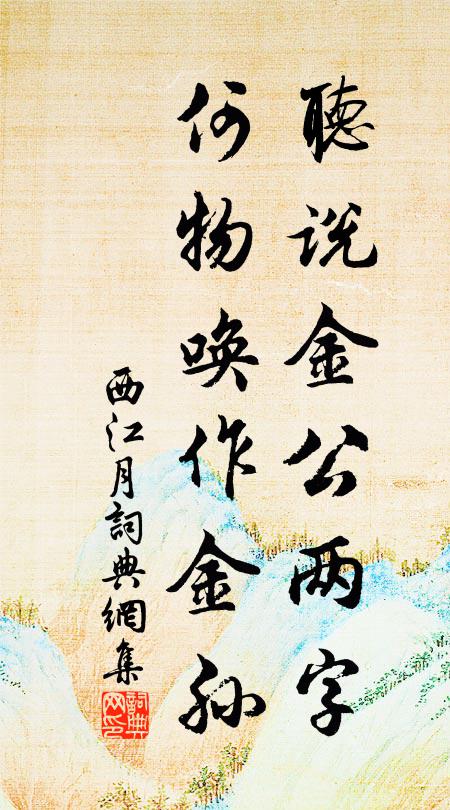 聽说金公两字
何物唤作金孙
西江月詞典網集
詞典网印